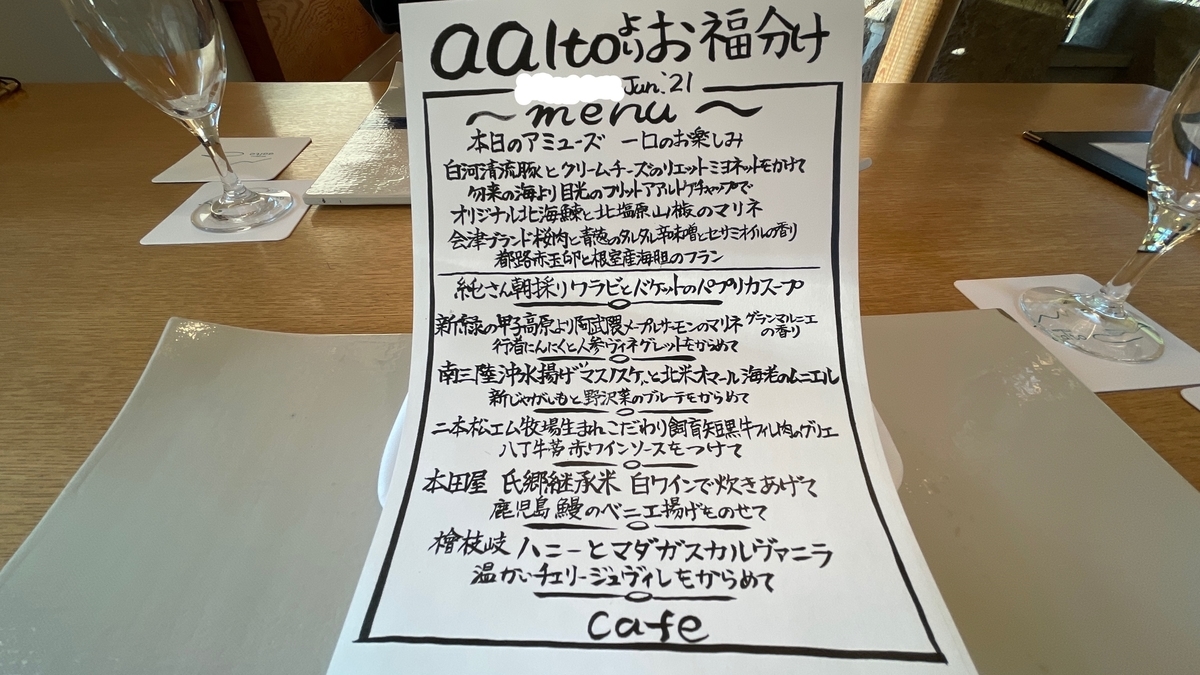 aaltoよりお福分け
Jun.'21
～menu～
本日のアミューズ 一口のお楽しみ
白河清流豚とクリームチーズのリエットミヨネットをかけて
勿来の海より目光のフリットアアルトケチャップで
オリジナル北海鰊と北塩原山椒のマリネ
会津ブランド桜肉と青葱のタルタル辛味噌とセサミオイルの香り
都路赤玉卵と根室産海胆のフラン
純さん朝採りワラビとバケットのパプリカスープ
新緑の甲子高原より阿武隈メープルサーモンのマリネ グランマルニエの香り
行者にんにくと人参ヴィネグレットをからめて
南三陸沖水揚げ"マスノスケ"と北米オマール海老のムニエル
新じゃがいもと野沢菜のブルーテをからめて
二本松エム牧場生まれこだわり飼育短黒牛フィレ肉のグリエ
八丁牛蒡赤ワインソースをつけて
本田屋 氏郷継承米 白ワインで炊きあげて
鹿児島鰻のベニエ揚げをのせて
檜枝岐ハニーとマダガスカルヴァニラ
温かいチェリージュヴィレをからめて
cafe